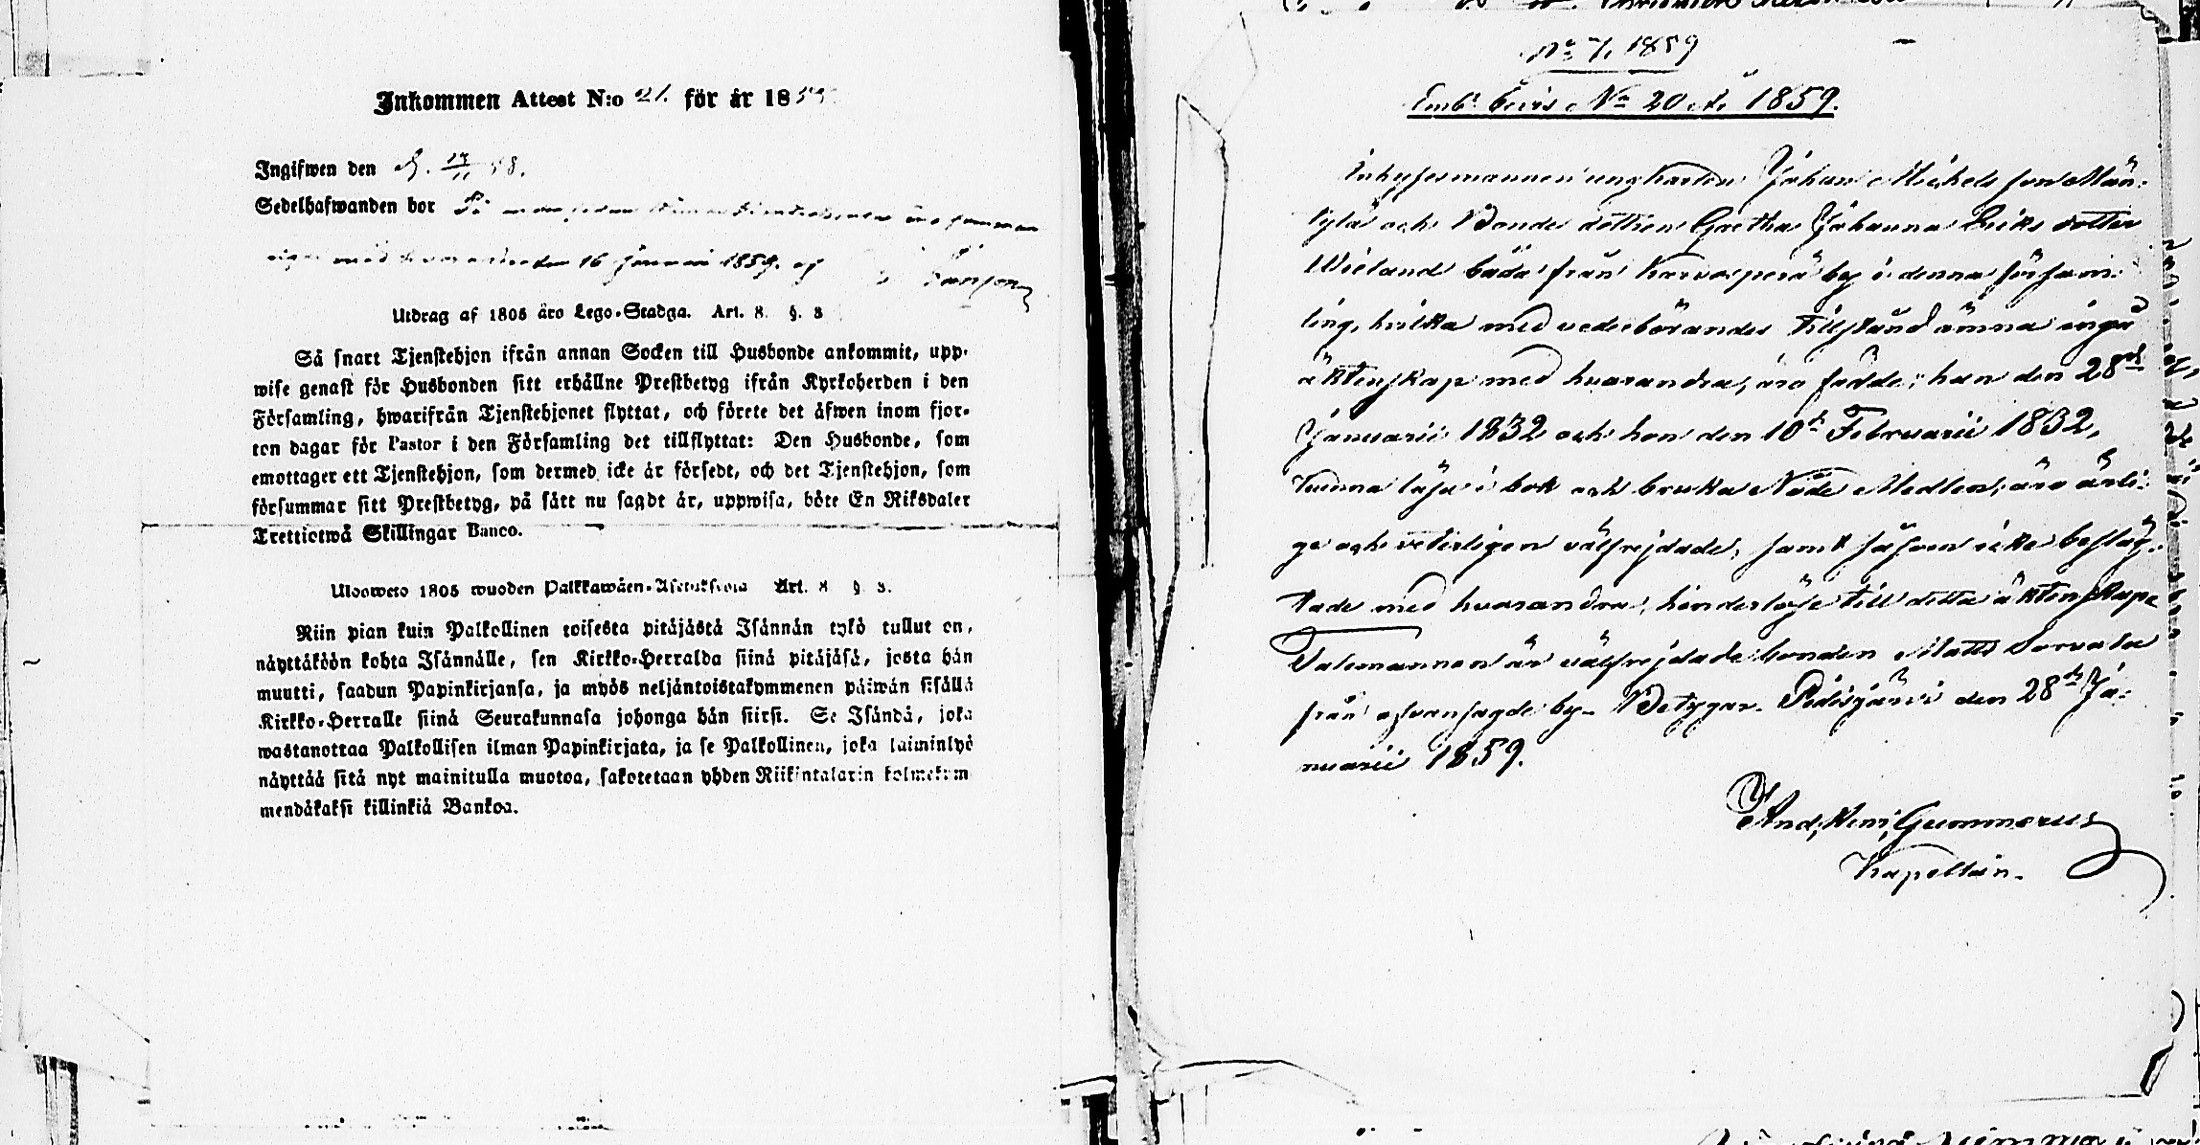 Inkommen Attest N:o 21. för år 1859
Ingifwen den 58.
Sedelhafwanden bor På
med den 16 Januari 1859. af
Utdrag af 1805 års Lego-Stadga. Art. 8. §. 3
Så snart Tjenstehjon ifrån annan Socken till Husbonde ankommit, upp-
wise genast för Husbonden sitt erhållne Prestbetyg ifrån Kyrkoherden i den
Församling, hwarifrån Tjenstehjonet flyttat, och förete det äfwen inom fjor-
ton dagar för Pastor i den Församling det tillflyttat: Den Husbonde, som
emottager ett Tjenstehjon, som dermed icke är försedt, och det Tjenstehjon, som
försummar sitt Prestbetyg, på sätt nu sagdt är, uppwisa, böte En Riksdaler
Trettiotwå Skillingar Banco.
Ulosweto 1805 wuoden Palkkawäen-Asetuksesta Art. 8 §. 3.
Niin pian kuin Palkollinen toisesta pitäjästä Isännän tykö tullut on,
näyttäköön kohta Isännälle, sen Kirkko-Herralda siinä pitäjäsä, josta hän
muutti, saadun Papinkirjansa, ja myös neljäntoistakymmenen päiwän sisällä
Kirkko-Herralle siinä Seurakunnasa johonga hän siirsi. Se Isändä, joka
wastanottaa Palkollisen ilman Papinkirjata, ja se Palkollinen, joka laiminlyö
näyttää sitä nyt mainitulla muotoa, sakotetaan yhden Riikintalarin kolmekym
mendäkaksi killinkiä Bankoa.
No 7, 1859
Embs bevis No 20 A. 1859.
Inhysesmannen ungkarlen Johan Michelsson Män-
tylä och Bondedottren Gretha Johanna Eriksdotter
Wieland båda från Karvosperä by i denna försam-
ling, hvilka med vederbörandes tillstånd ämna ingå
äktenskap med hvarandra, äro födde; han den 28de
Januarii 1832 och hon den 10de Februarii 1832,
kunna läsa i bok och bruka Nåde Medlen; äro ärli-
ge och veterligen välfrejdade, samt jäfven icke beslägt-
tade med hvarandra, hinderlöse till detta äktenskap.
Talemannen är välfrejdade bonden Matts Sorvala
från ofvansagde by. Betygar. Pidisjärvi den 28de Ja-
nuarii 1859.
And. Henr. Gummerus
Kapellan.